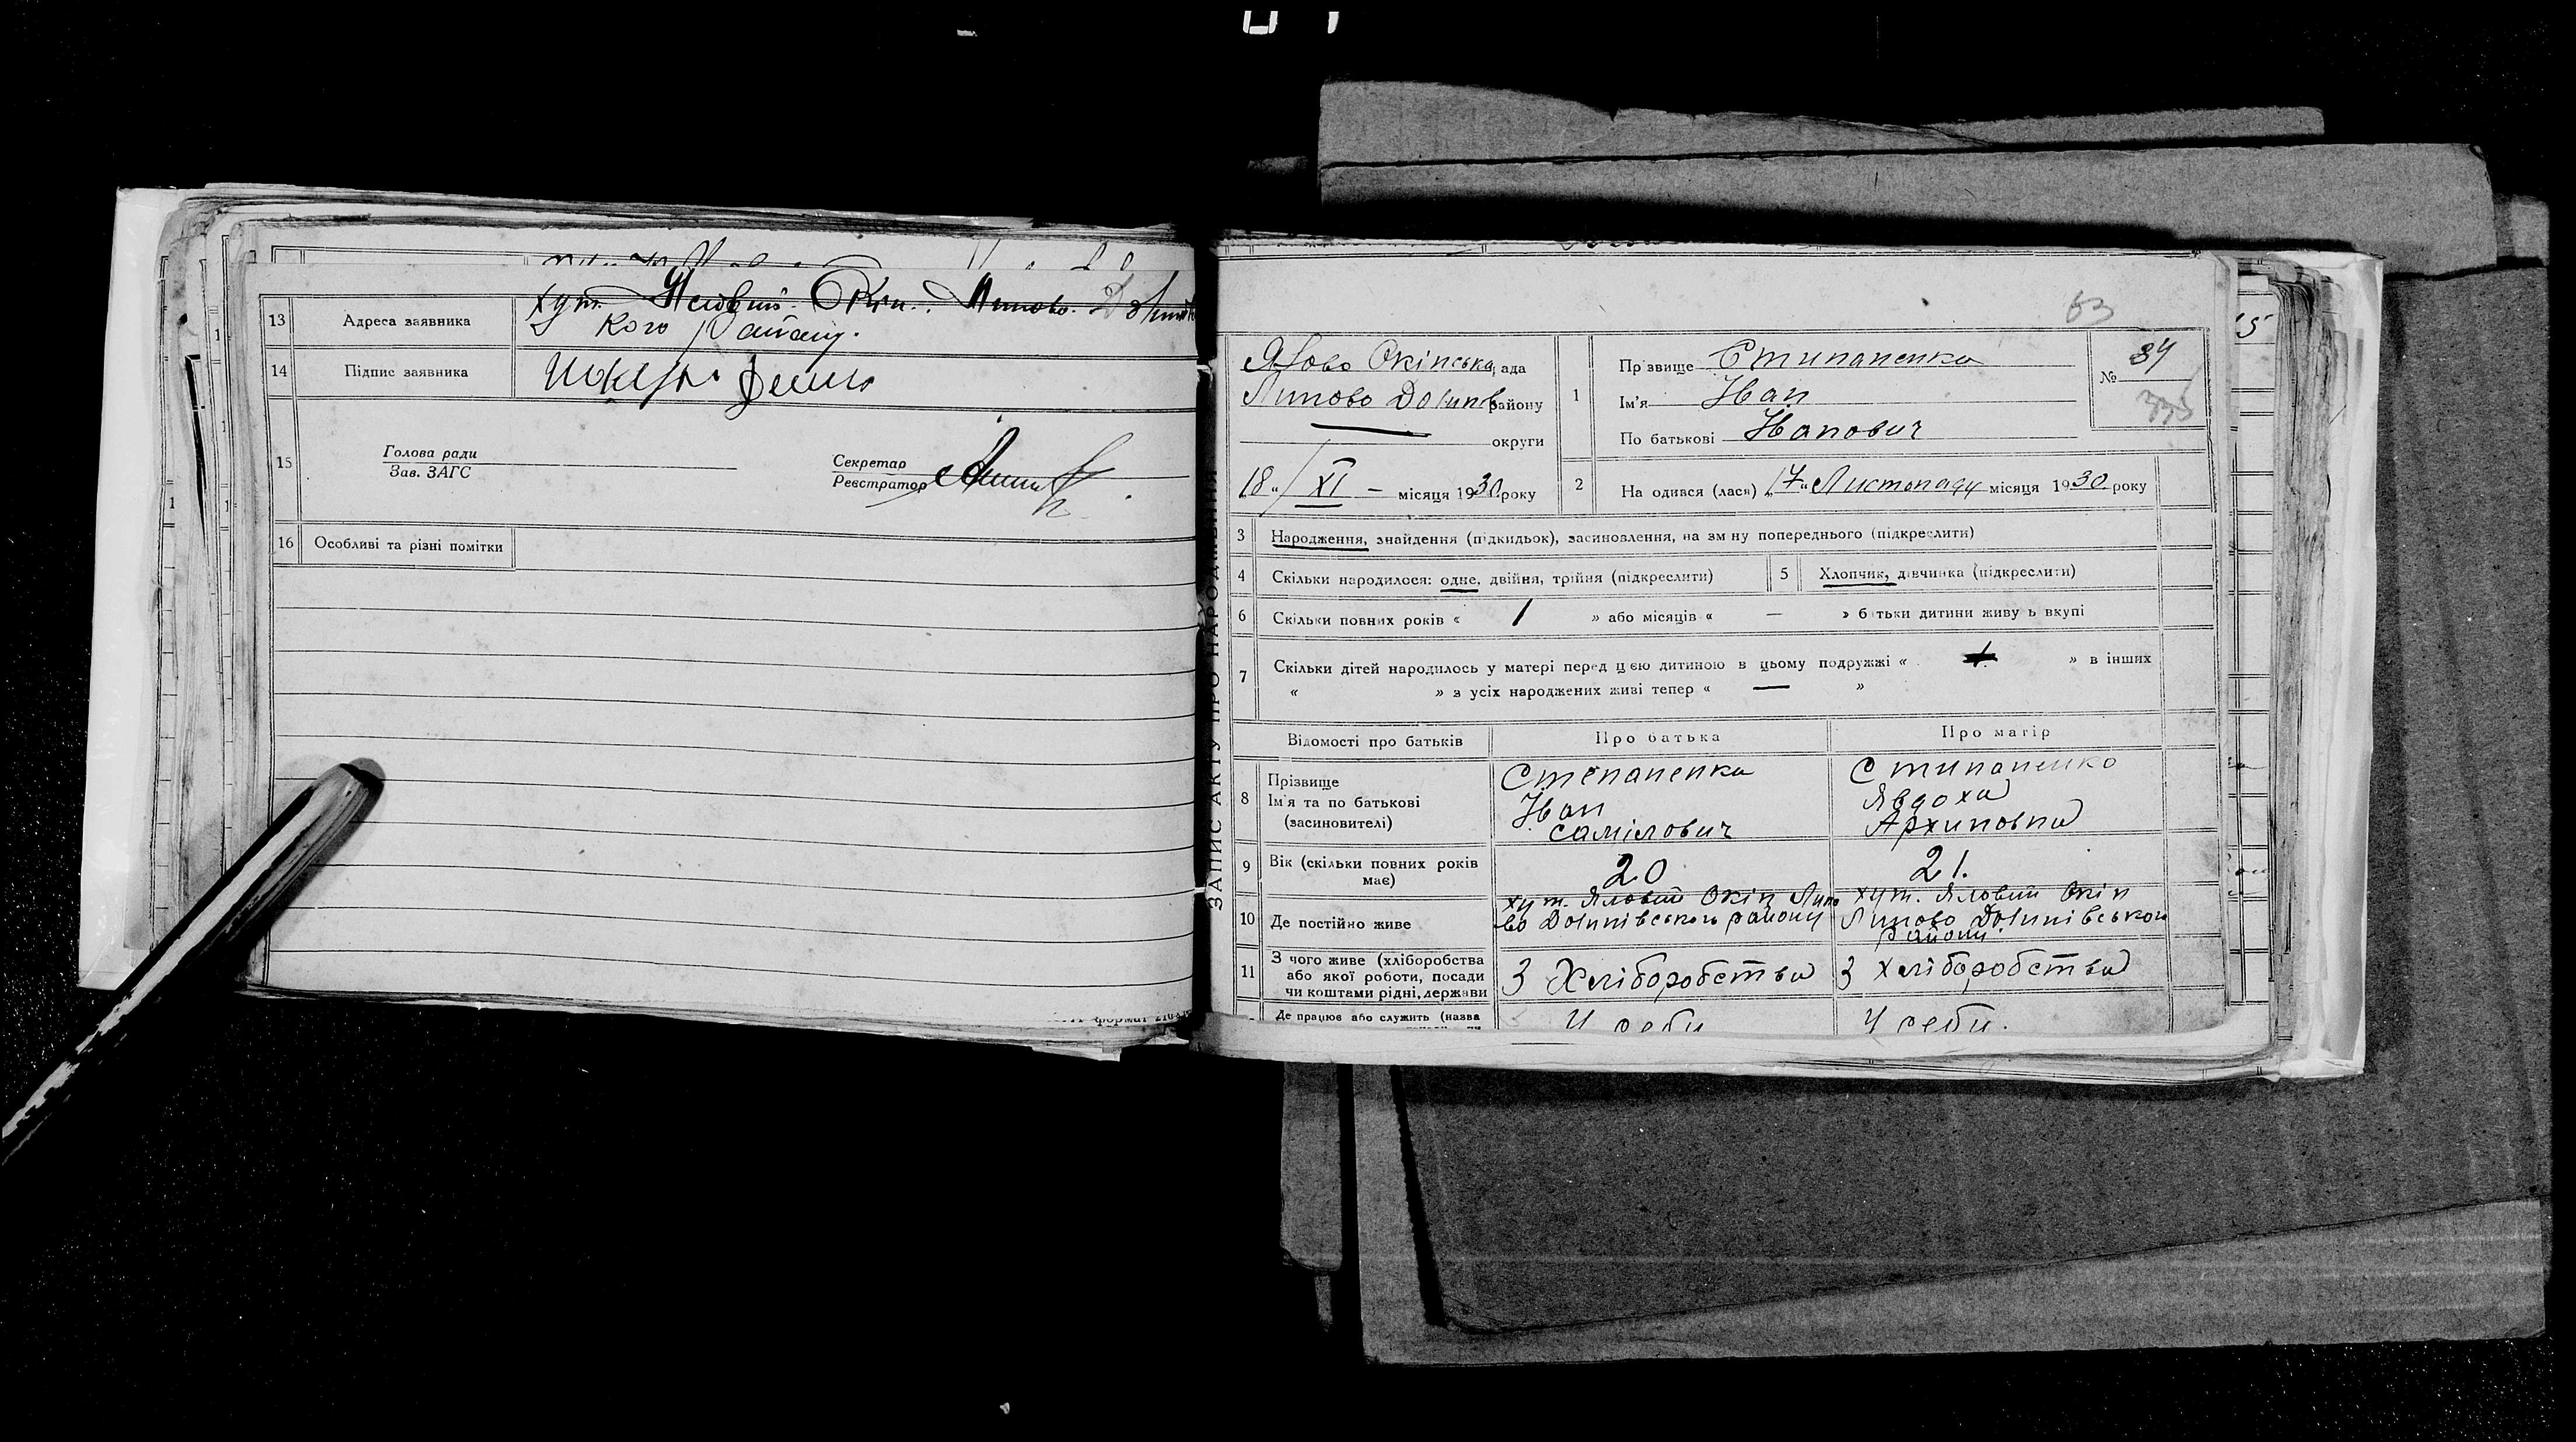 13 Адреса заявника хут. Яловий Окіп. Липово-Долинсь
кого Району.
14 Підпис заявника
15 Голова ради
Зав. ЗАГС
Секретар
Реєстратор
16 Особливі та різні помітки
ЗАПИС АКТУ ПРО НАРОДЖЕННЯ
63
Ялово Окіпська рада
Липово Долинс району
округи
18 / XI – місяця 1930 року
1 Пр звище Стипаненко
Ім'я Іван
По батькові Іванович
№ 84
335
2 На одився (лася) „7“ Листопаду місяця 1930 року
3 Народження, знайдення (підкидьок), засиновлення, на зм ну попереднього (підкреслити)
4 Скільки народилося: одне, двійня, трійня (підкреслити)
5 Хлопчик, дівчинка (підкреслити)
6 Скільки повних років « 1 » або місяців « — » б тьки дитини живу ь вкупі
7 Скільки дітей народилось у матері перед цією дитиною в цьому подружжі « » в інших
« » з усіх народжених живі тепер « — »
Відомості про батьків Про батька Про матір
8 Прізвище
Ім'я та по батькові
(засиновителі)
Степаненко
Іван
Самілович
Стипаненко
Явдоха
Архиповна
9 Вік (скільки повних років
має)
20
21.
10 Де постійно живе
хут. Яловий Окіп Липо
во Долинівського району
хут. Яловий Окіп
Липово Долинівського
району.
11 З чого живе (хліборобства
або якої роботи, посади
чи коштами рідні, держави
З Хліборобства
З хліборобства
Де працює або служить (назва
У себи
У себи.